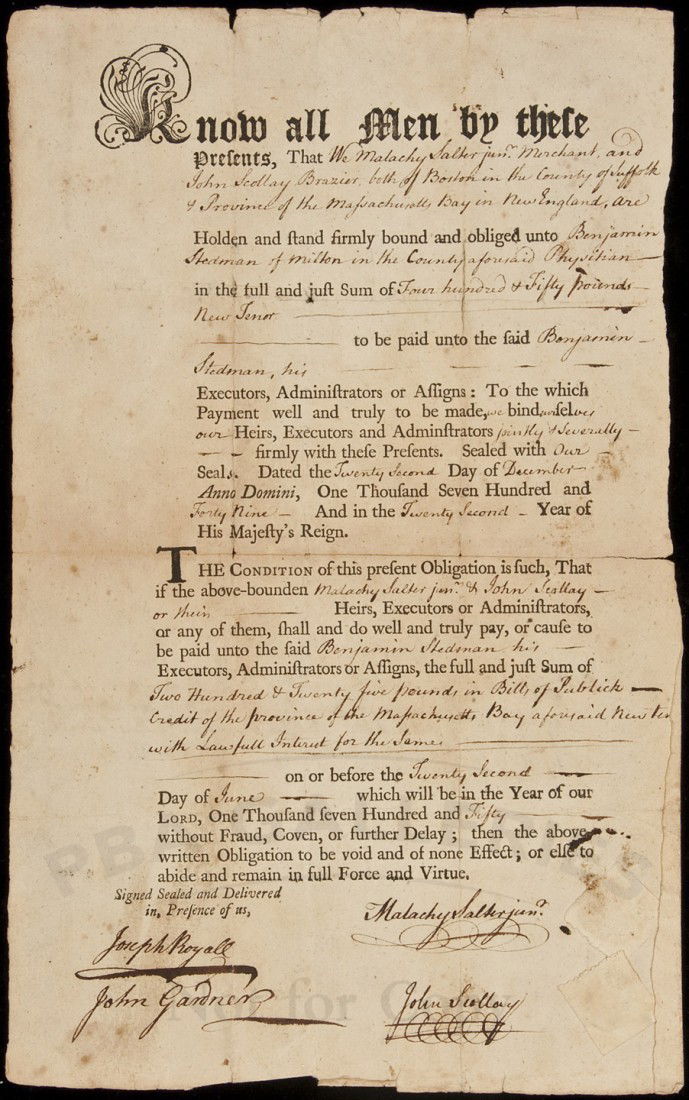 Know all Men by theſe
Preſents, That We Malachy Salter junr. Merchant, and
John Scollay Brazier, both of Boston in the County of Suffolk
& Province of the Maſsachusetts Bay in New England, are
Holden and ſtand firmly bound and obliged unto Benjamin
Stedman of Milton in the County aforesaid Physitian —
in the full and juſt Sum of Four hundred & Fifty pounds —
New Tenor —
— to be paid unto the ſaid Benjamin —
Stedman, his —
Executors, Adminiſtrators or Aſſigns: To the which
Payment well and truly to be made, we bind ourſelves
our Heirs, Executors and Adminſtrators jointly & Severally —
— — firmly with theſe Preſents. Sealed with Our —
Seals. Dated the Twenty Second Day of December
Anno Domini, One Thouſand Seven Hundred and
Forty Nine — And in the Twenty Second — Year of
His Majeſty's Reign.
THE CONDITION of this preſent Obligation is ſuch, That
if the above-bounden Malachy Salter junr. & John Scollay —
or their — Heirs, Executors or Adminiſtrators,
or any of them, ſhall and do well and truly pay, or cauſe to
be paid unto the ſaid Benjamin Stedman his —
Executors, Adminiſtrators or Aſſigns, the full and juſt Sum of
Two Hundred & Twenty five pounds in Bills of Publick —
Credit of the province of the Maſsachusetts Bay aforsaid New ten
with Lawfull Interest for the Same —
— on or before the Twenty Second —
Day of June — which will be in the Year of our
LORD, One Thouſand ſeven Hundred and Fifty —
without Fraud, Coven, or further Delay; then the above
written Obligation to be void and of none Effect; or elſe to
abide and remain in full Force and Virtue.
Signed Sealed and Delivered
in Preſence of us,
Malachy Salter junr.
Joseph Royall
John Gardner
John Scollay